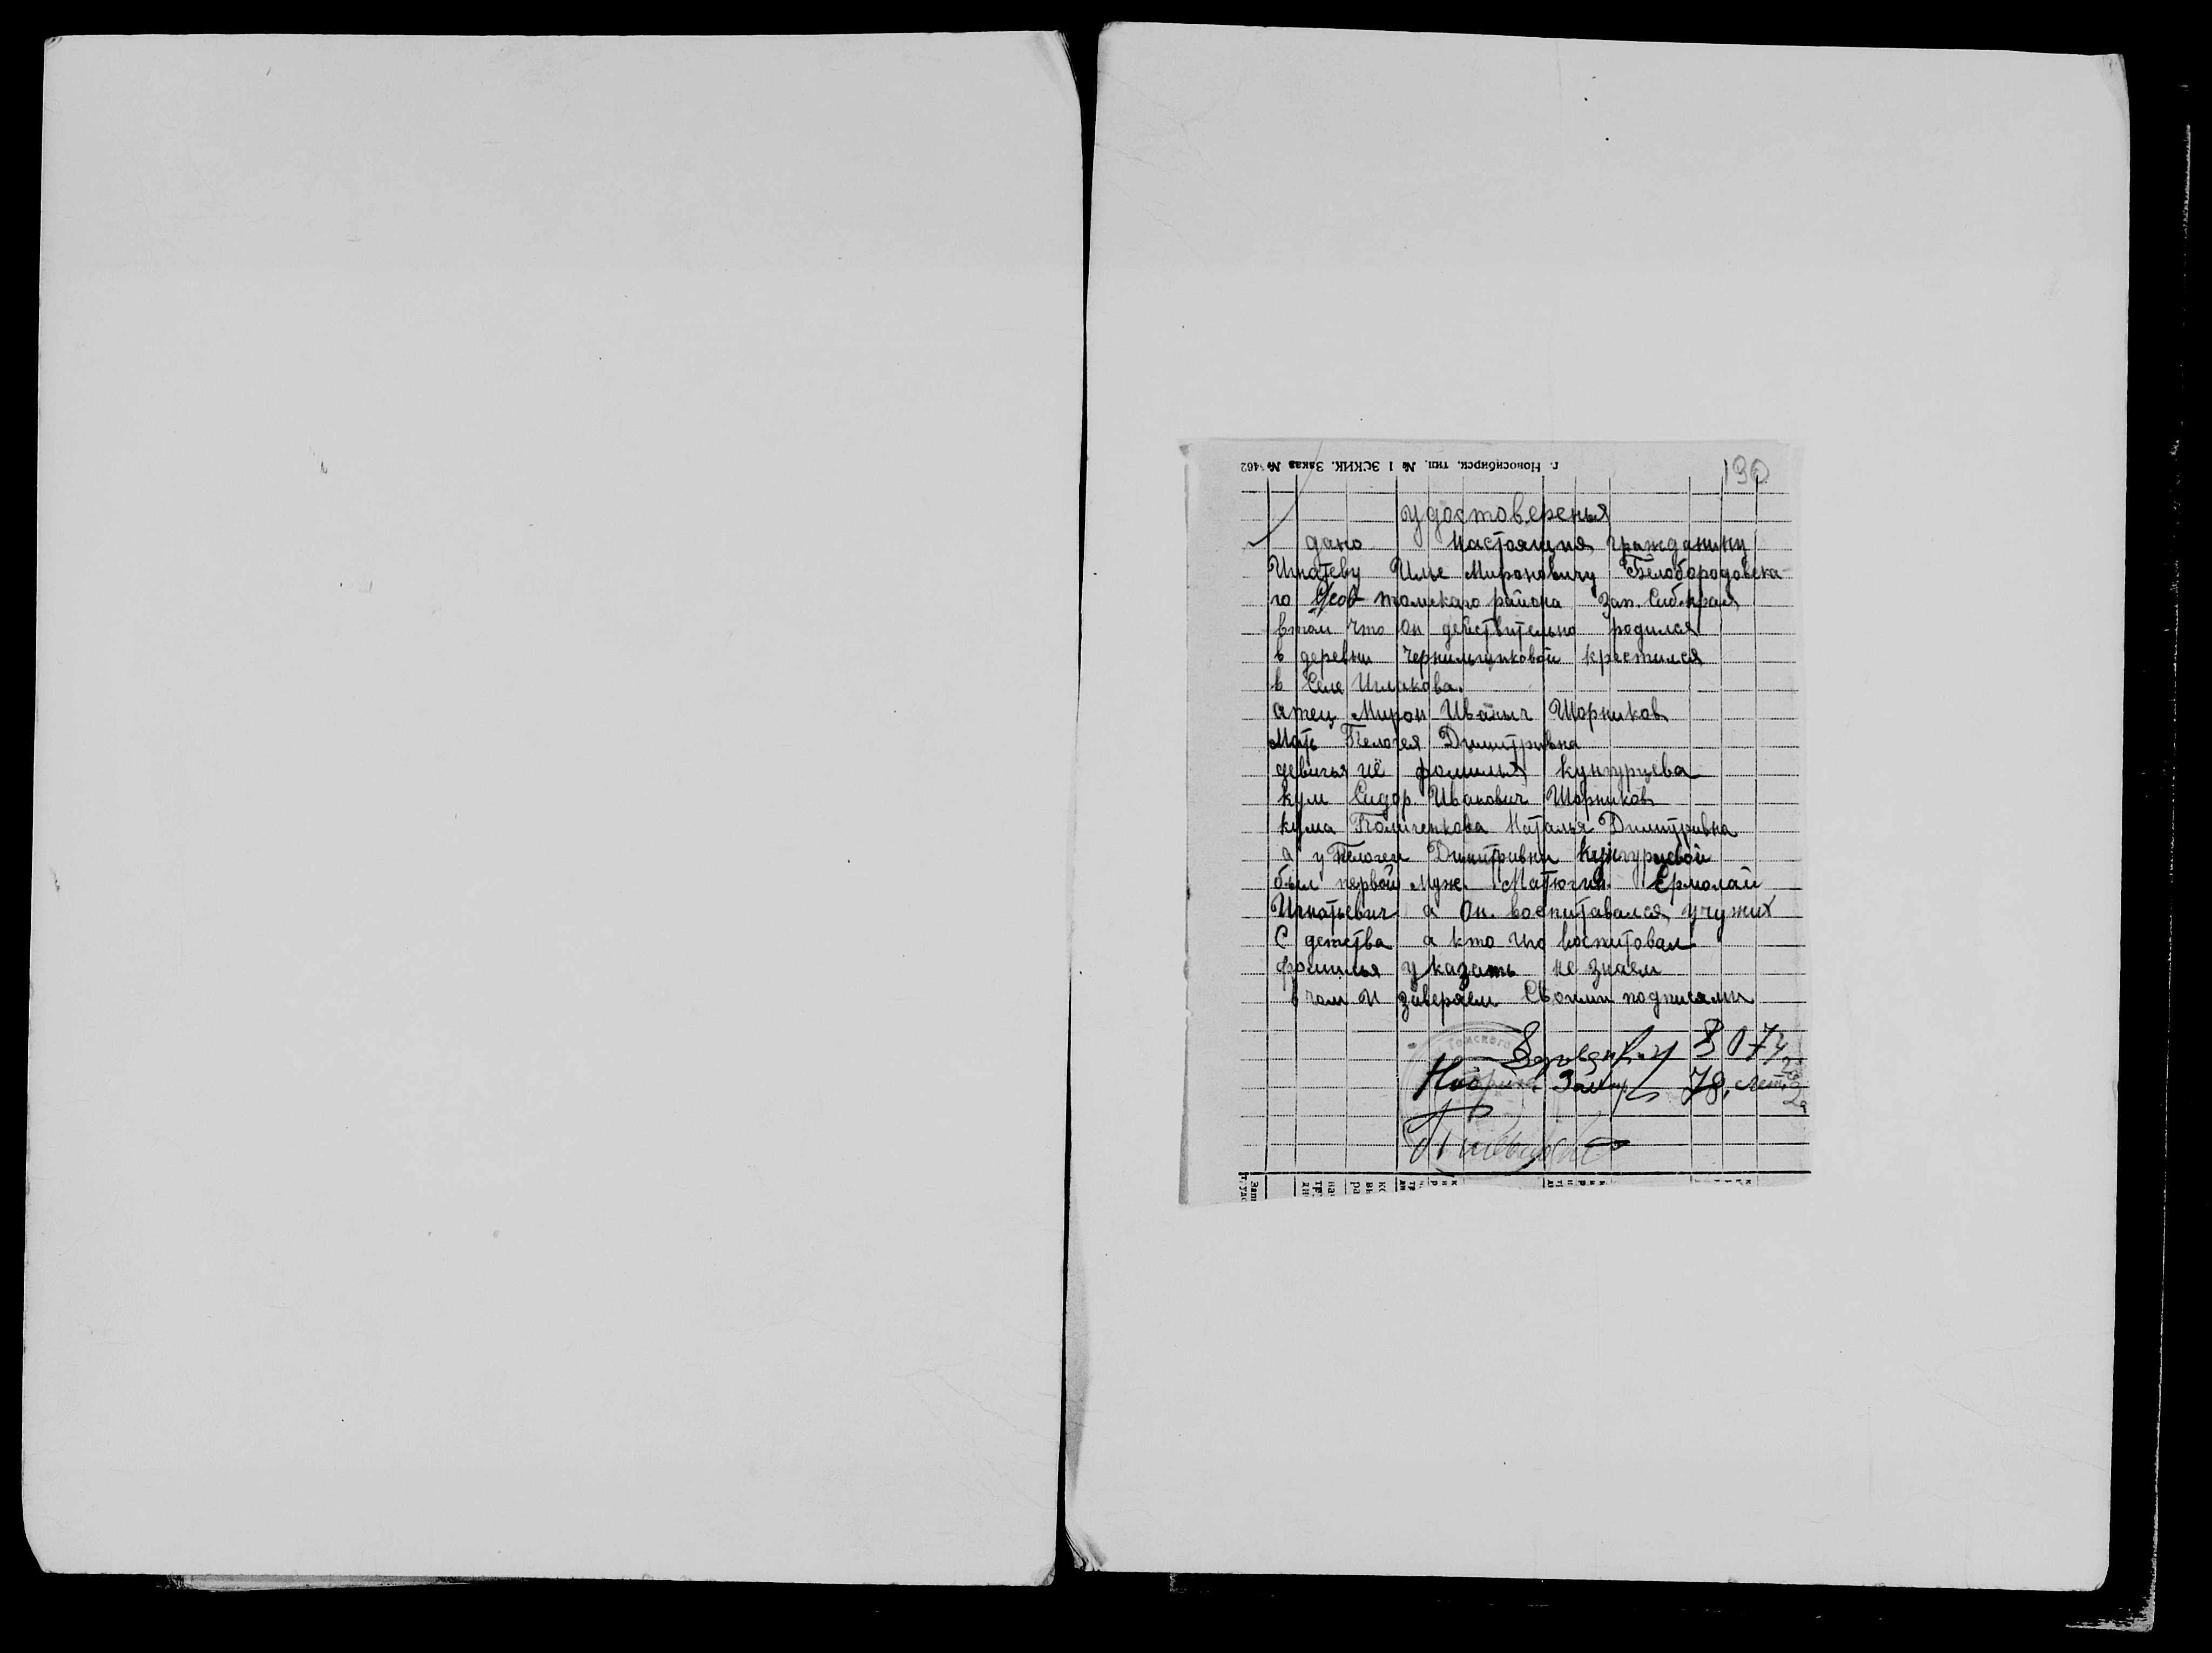 г. Новосибирск, тип. № 1 ЗСКИК. Заказ № 462
130
удостоверенья
дано настоящия гражданину
Игнатеву Илье Мироновичу Белобородовска-
го С/сов томскаго района Зап. Сиб. края
втом что он действительно родился
в деревни Чернильщиковой крестился
в Селе Иглакова.
отец Мирон Иваныч Шорников
Мать Пелогея Димитривна
девичья иё фомилья Кунгурцева
кум Сидор Иванович Шорников
кума Наталья Димитривна
а у Пелогеи Димитривни Кунгурцевой
был первой муж. Матюгин Ермолай
Игнатьевич а Он. воспитавался учужих
С детства а кто иго воспитовал
фомилья указать не знаем
в чом и заверяем Своими подписями
Томского
78 лет